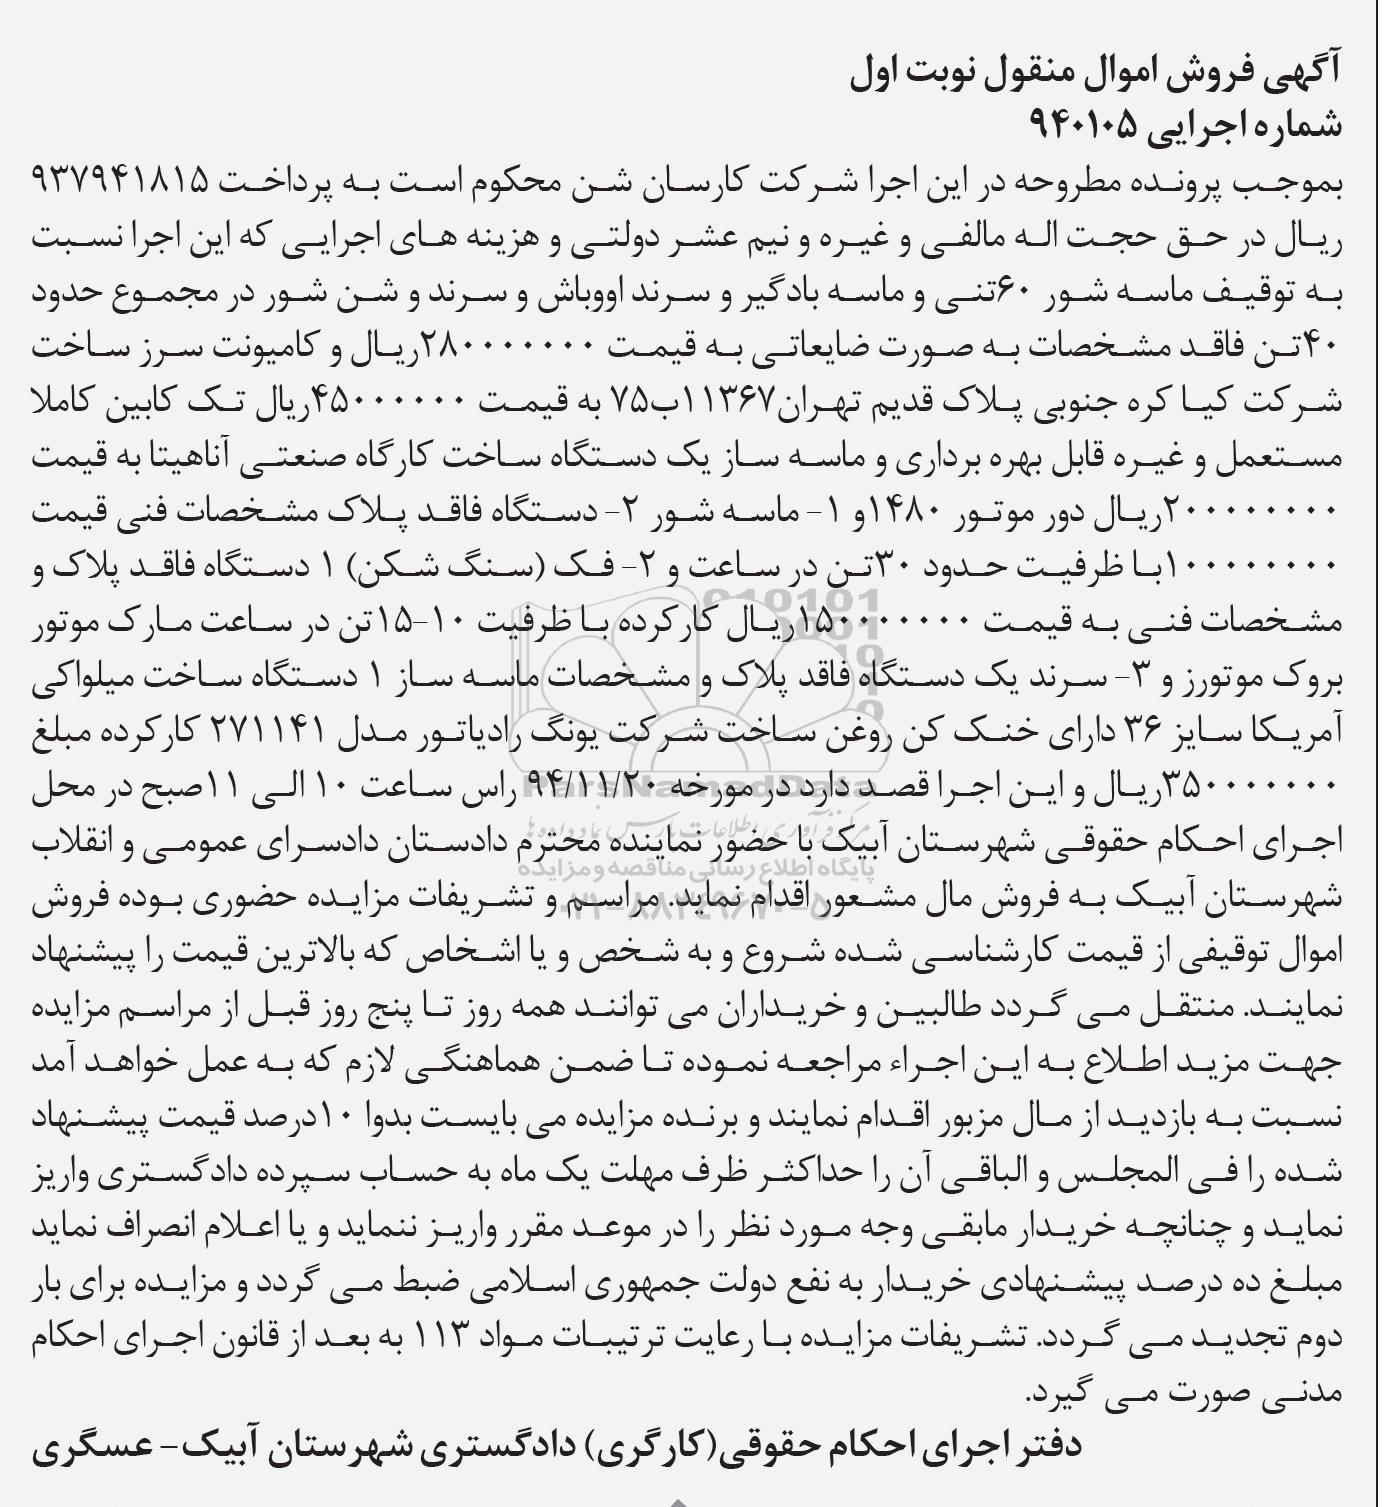 آگهی فروش اموال منقول نوبت اول
شماره اجرایی ۹۴۰۱۰۵
بموجب پرونده مطروحه در این اجرا شرکت کارسان شن محکوم است به پرداخت ۹۳۷۹۴۱۸۱۵
ریال در حق حجت اله مالفی و غیره و نیم عشر دولتی و هزینه های اجرایی که این اجرا نسبت
به توقیف ماسه شور ۶۰تنی و ماسه بادگیر و سرند اووباش و سرند و شن شور در مجموع حدود
۴۰تن فاقد مشخصات به صورت ضایعاتی به قیمت ۲۸۰۰۰۰۰۰۰ریال و کامیونت سرز ساخت
شرکت کیا کره جنوبی پلاک قدیم تهران۱۱۳۶۷ب۷۵ به قیمت ۴۵۰۰۰۰۰۰ریال تک کابین کاملا
مستعمل و غیره قابل بهره برداری و ماسه ساز یک دستگاه ساخت کارگاه صنعتی آناهیتا به قیمت
۲۰۰۰۰۰۰۰۰ریال دور موتور ۱۴۸۰و ۱- ماسه شور ۲- دستگاه فاقد پلاک مشخصات فنی قیمت
۱۰۰۰۰۰۰۰۰با ظرفیت حدود ۳۰تن در ساعت و ۲- فک (سنگ شکن) ۱ دستگاه فاقد پلاک و
مشخصات فنی به قیمت ۱۵۰۰۰۰۰۰۰ریال کارکرده با ظرفیت ۱۰-۱۵تن در ساعت مارک موتور
بروک موتورز و ۳- سرند یک دستگاه فاقد پلاک و مشخصات ماسه ساز ۱ دستگاه ساخت میلواکی
آمریکا سایز ۳۶ دارای خنک کن روغن ساخت شرکت یونگ رادیاتور مدل ۲۷۱۱۴۱ کارکرده مبلغ
۳۵۰۰۰۰۰۰۰ریال و این اجرا قصد دارد در مورخه ۹۴/۱۱/۲۰ راس ساعت ۱۰ الی ۱۱صبح در محل
اجرای احکام حقوقی شهرستان آبیک با حضور نماینده محترم دادستان دادسرای عمومی و انقلاب
شهرستان آبیک به فروش مال مشعور اقدام نماید. مراسم و تشریفات مزایده حضوری بوده فروش
اموال توقیفی از قیمت کارشناسی شده شروع و به شخص و یا اشخاص که بالاترین قیمت را پیشنهاد
نمایند. منتقل می گردد طالبین و خریداران می توانند همه روز تا پنج روز قبل از مراسم مزایده
جهت مزید اطلاع به این اجراء مراجعه نموده تا ضمن هماهنگی لازم که به عمل خواهد آمد
نسبت به بازدید از مال مزبور اقدام نمایند و برنده مزایده می بایست بدوا ۱۰درصد قیمت پیشنهاد
شده را فی المجلس و الباقی آن را حداکثر ظرف مهلت یک ماه به حساب سپرده دادگستری واریز
نماید و چنانچه خریدار مابقی وجه مورد نظر را در موعد مقرر واریز ننماید و یا اعلام انصراف نماید
مبلغ ده درصد پیشنهادی خریدار به نفع دولت جمهوری اسلامی ضبط می گردد و مزایده برای بار
دوم تجدید می گردد. تشریفات مزایده با رعایت ترتیبات مواد ۱۱۳ به بعد از قانون اجرای احکام
مدنی صورت می گیرد.
دفتر اجرای احکام حقوقی(کارگری) دادگستری شهرستان آبیک- عسگری
ParsNamadData
پایگاه اطلاع رسانی مناقصه و مزایده